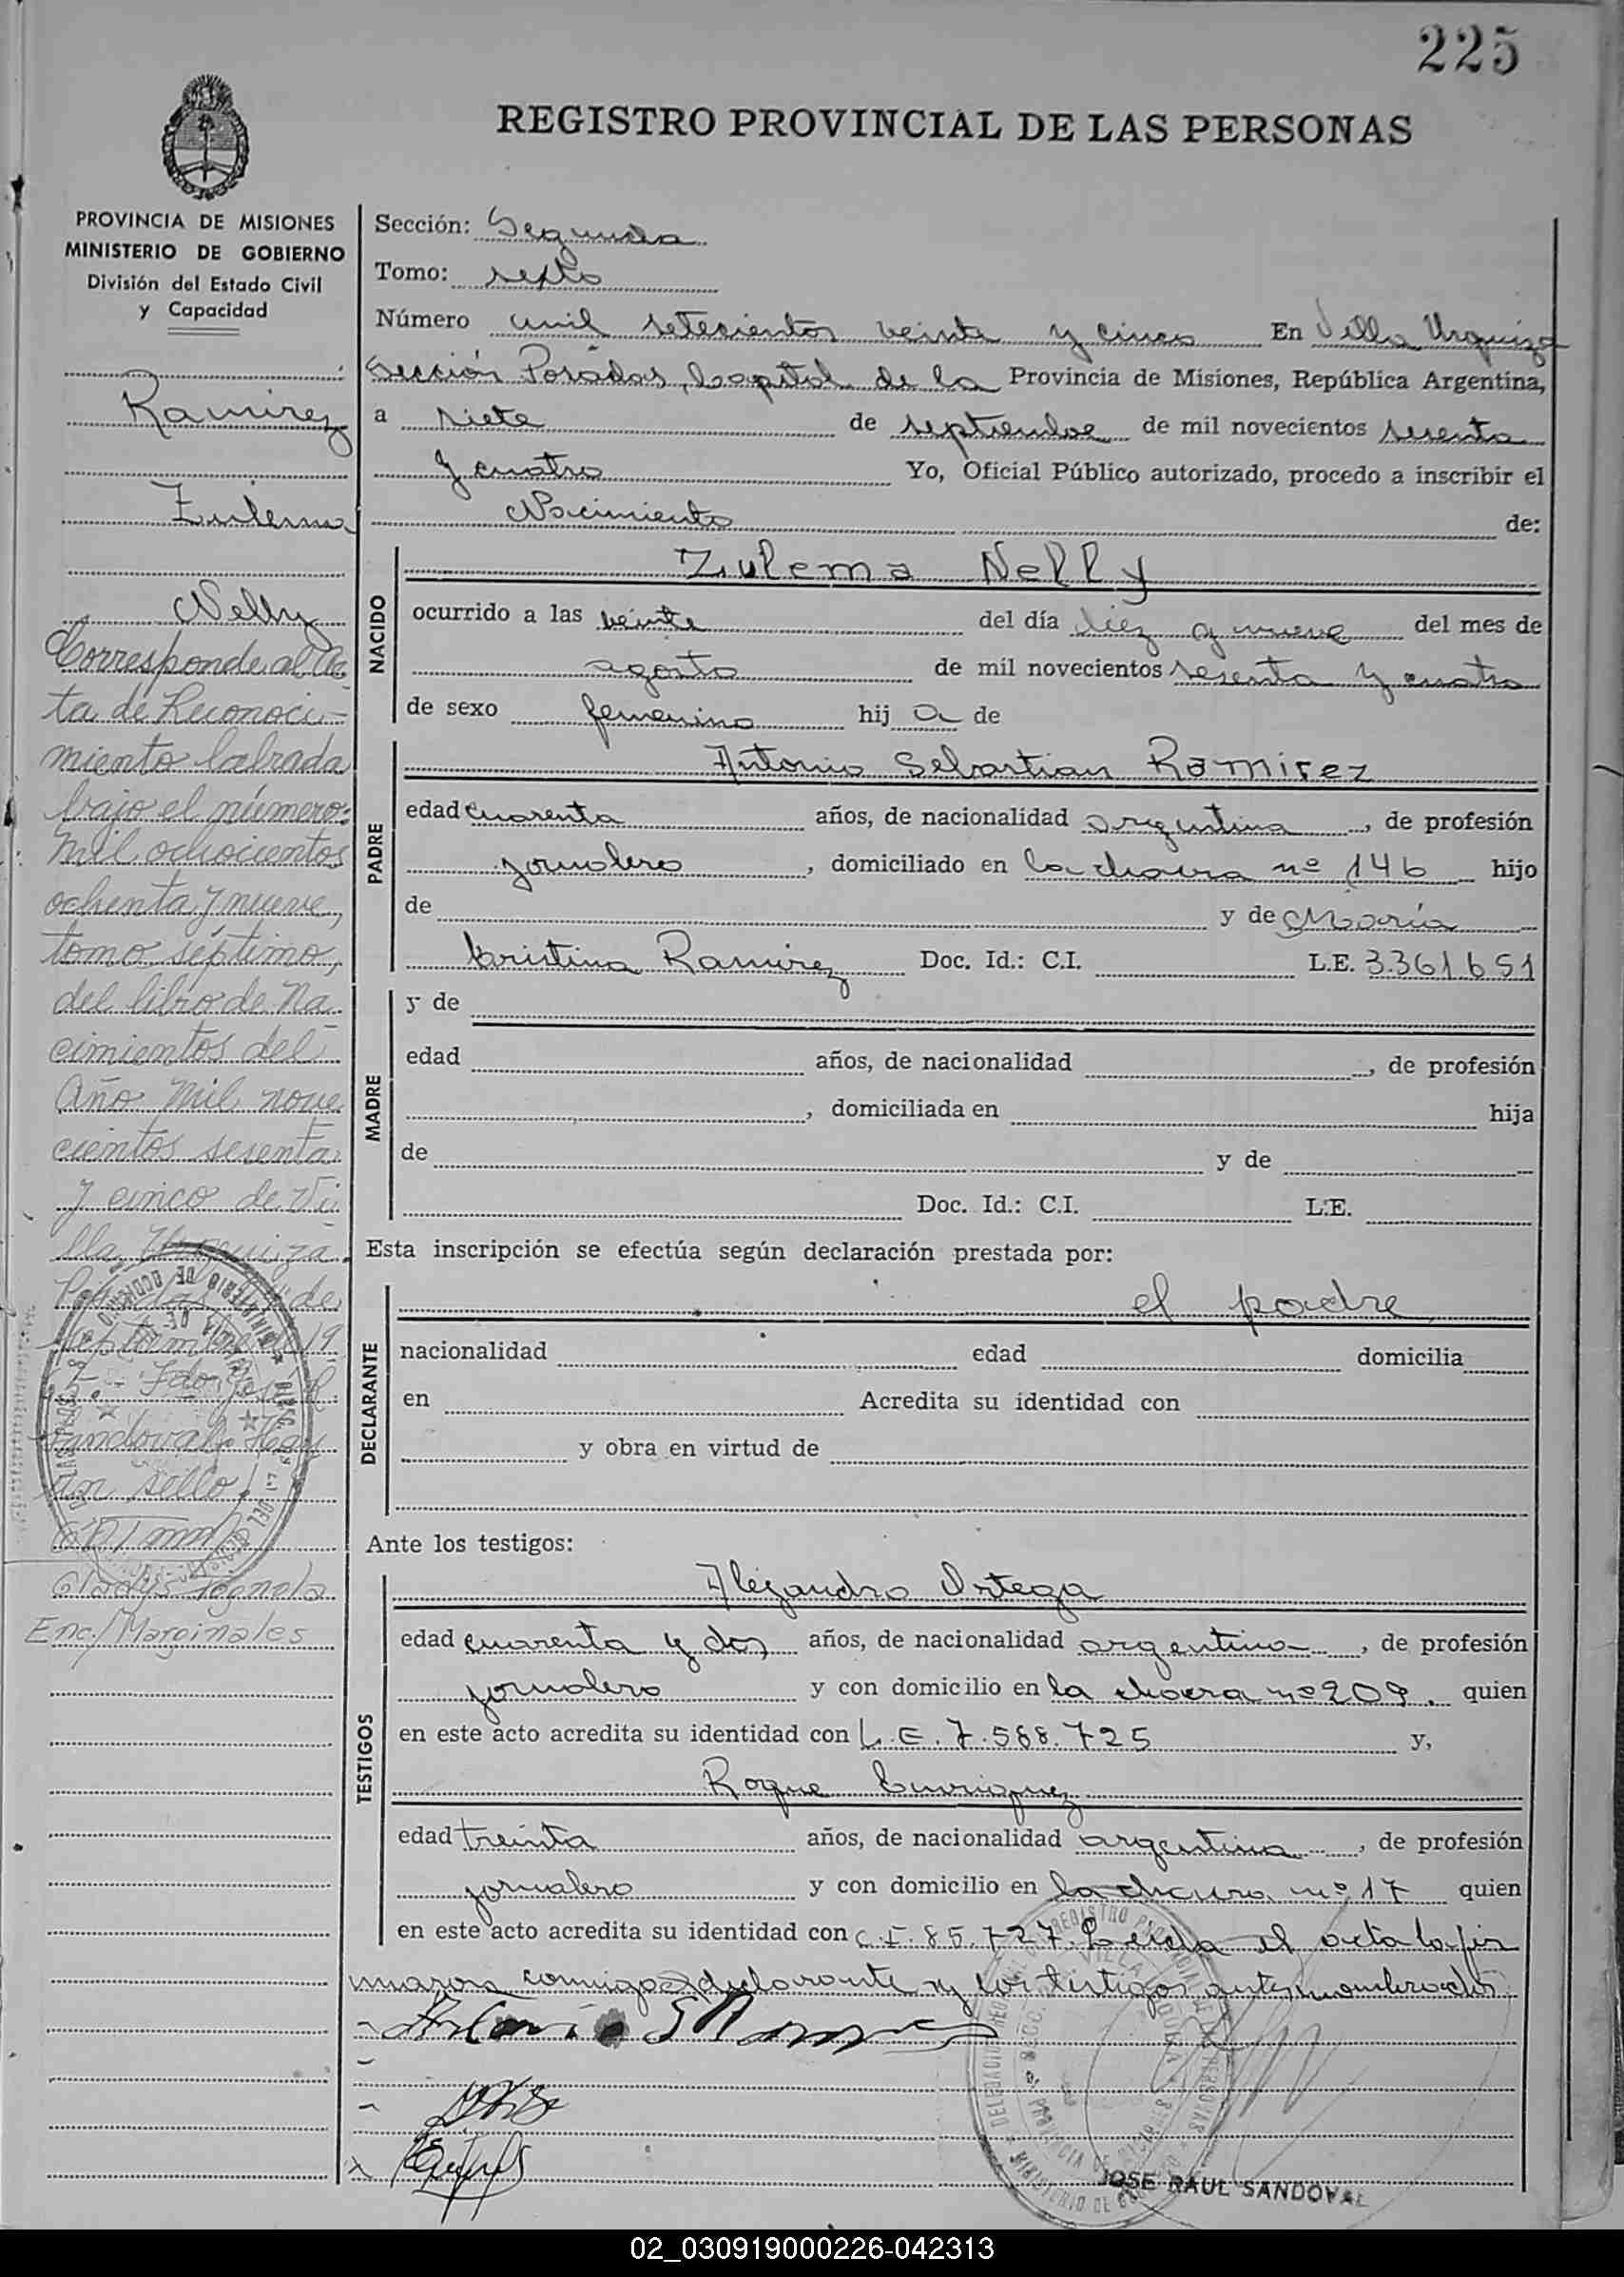 225
REGISTRO PROVINCIAL DE LAS PERSONAS
PROVINCIA DE MISIONES
MINISTERIO DE GOBIERNO
División del Estado Civil
y Capacidad
Ramirez
Zulema
Nelly
Corresponde al Ac-
ta de Reconoci-
miento labrada
bajo el número:
Mil ochocientos
ochenta y nueve,
tomo séptimo,
del libro de Na-
cimientos del
Año Mil nove
cientos sesenta
y cinco de Vi-
lla Urquiza.
de
Septiembre
Fdo José R.
Sandoval. Hay
un sello.
Gladys
Enc/Marginales
Sección: Segunda
Tomo: sexto
Número mil setecientos veinte y cinco En Villa Urquiza
Sección Posadas, Capital de la Provincia de Misiones, República Argentina,
a siete de septiembre de mil novecientos sesenta
y cuatro Yo, Oficial Público autorizado, procedo a inscribir el
Nacimiento de:
NACIDO
Zulema Nelly
ocurrido a las veinte del día diez y nueve del mes de
agosto de mil novecientos sesenta y cuatro
de sexo femenino hij a de
PADRE
Antonio Sebastian Ramirez
edad cuarenta años, de nacionalidad argentina, de profesión
jornalero, domiciliado en la chacra nº 146 hijo
de y de María
Cristina Ramirez Doc. Id.: C.I. L.E. 3361651
MADRE
y de
edad años, de nacionalidad , de profesión
, domiciliada en hija
de y de
Doc. Id.: C.I. L.E.
Esta inscripción se efectúa según declaración prestada por:
DECLARANTE
el padre
nacionalidad edad domicilia
en Acredita su identidad con
y obra en virtud de
Ante los testigos:
TESTIGOS
Alejandro Ortega
edad cuarenta y dos años, de nacionalidad argentino, de profesión
jornalero y con domicilio en la chacra nº 209. quien
en este acto acredita su identidad con L.E. 7.568.725 y,
Roque Enriquez
edad treinta años, de nacionalidad argentina, de profesión
jornalero y con domicilio en la chacra nº 17 quien
en este acto acredita su identidad con C.I. 85.727. Leida el acta la fir
maron conmigo el declarante y los testigos antes nombrados
JOSE RAUL SANDOVAL
02_030919000226-042313